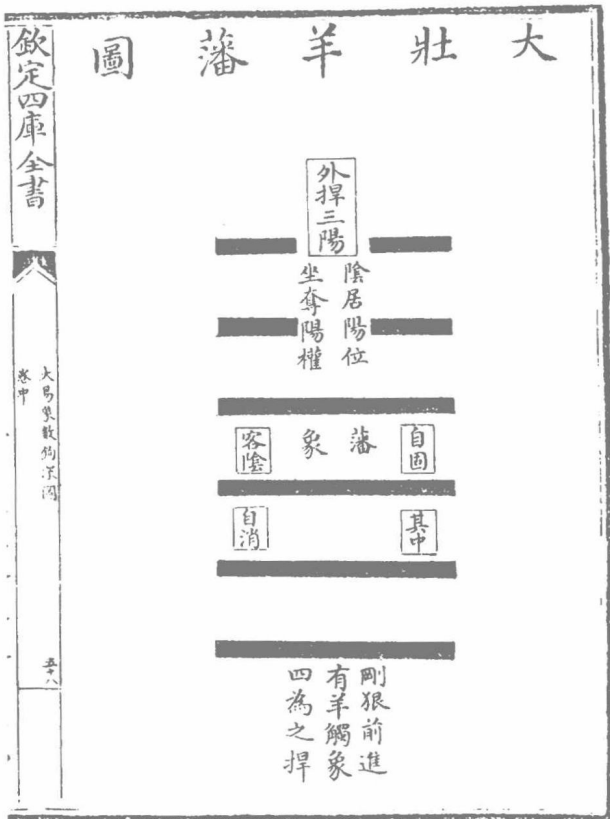 大壯羊藩圖
外捍三陽
陰居陽位
坐奪陽權
自固
藩象
客陰
其中
自消
剛狠前進
有羊觸象
四為之捍
欽定四庫全書
大易象數鈎深圖
卷中
五十八